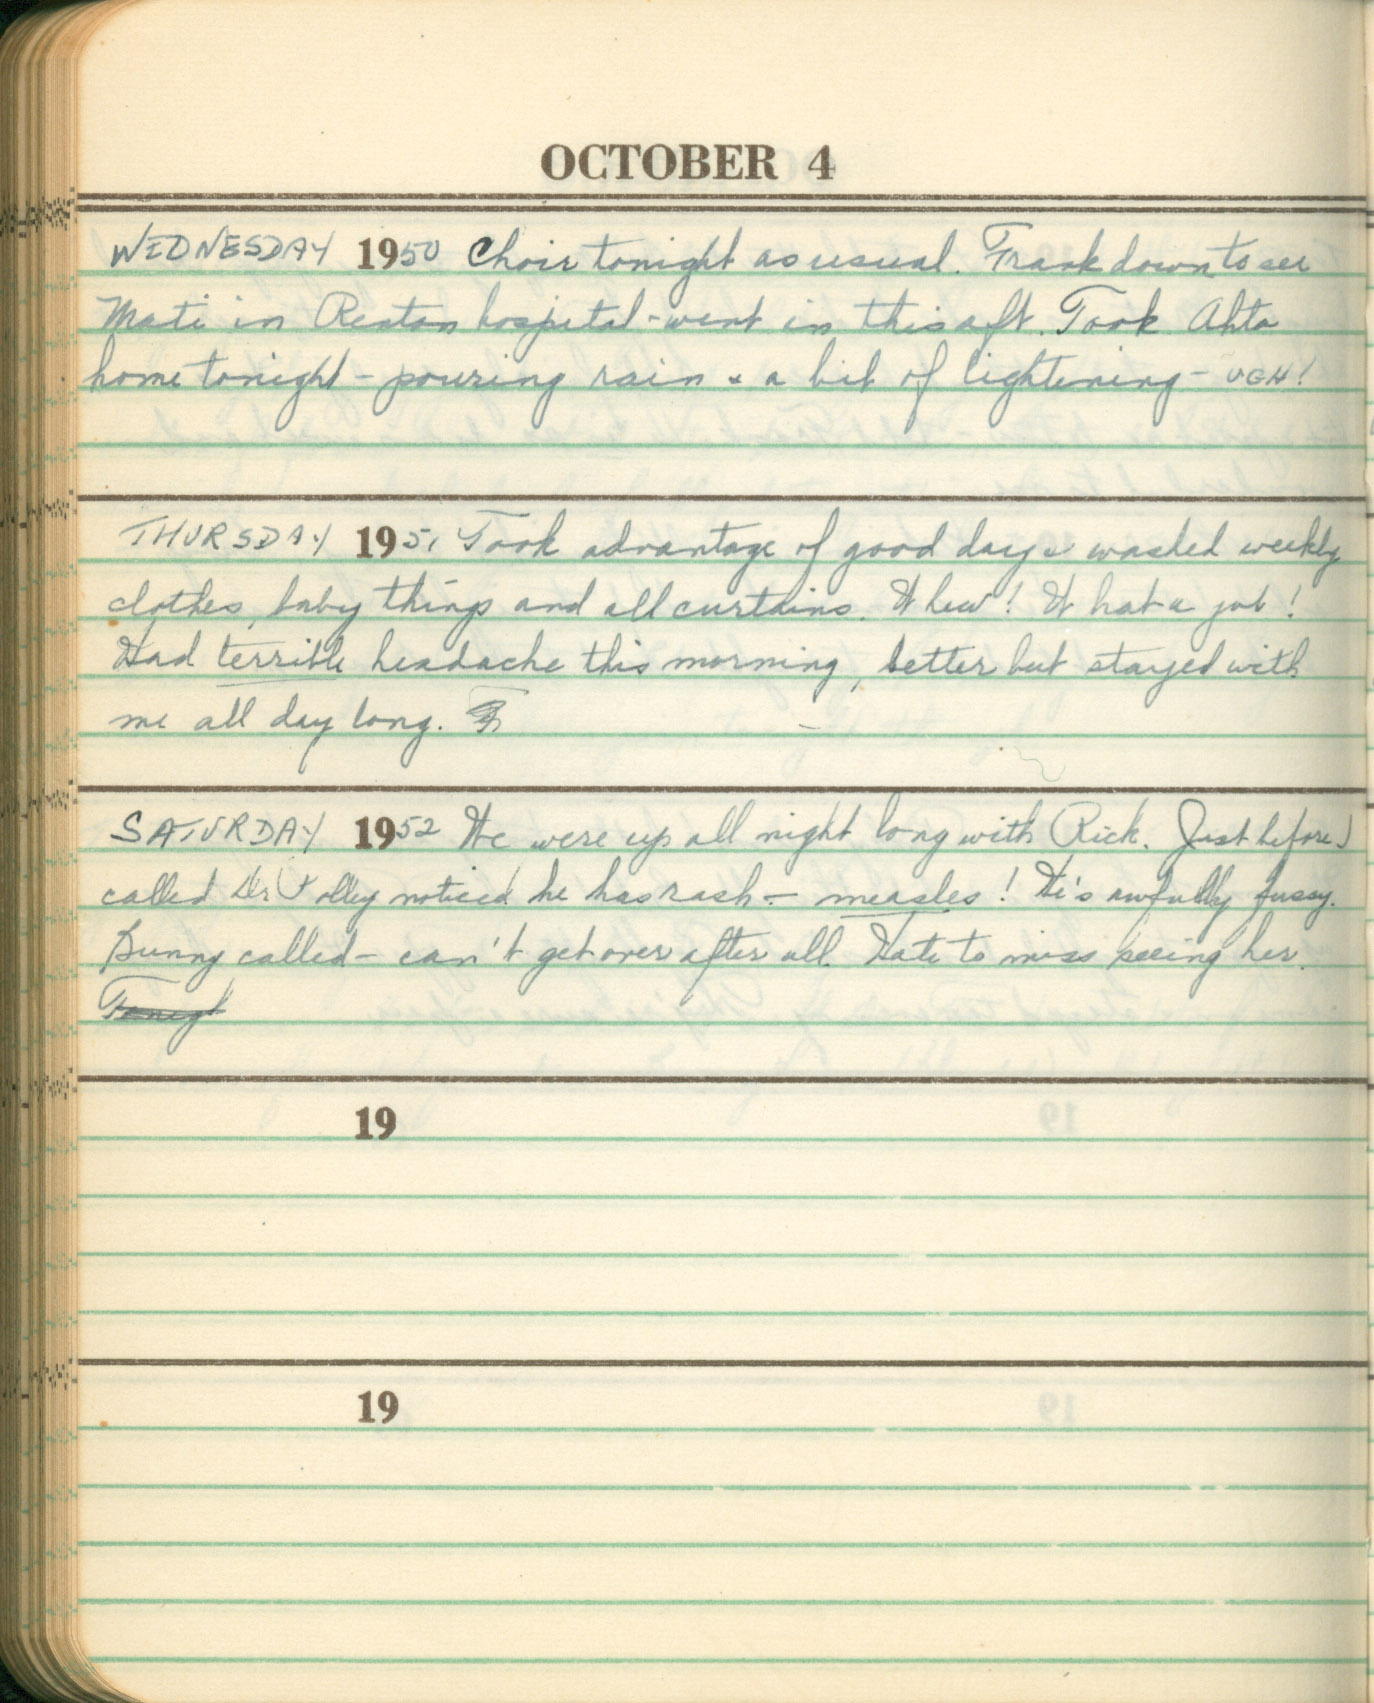 OCTOBER 4
WEDNESDAY 1950 Choir tonight as usual. Frank down to see
Mati in Renton hospital - went in this aft. Took Ahto
home tonight - pouring rain & a bit of lightening - UGH!
THURSDAY 1951 Took advantage of good day & washed weekly
clothes, baby things and all curtains. Whew! What a job!
Had terrible headache this morning, better but stayed with
me all day long.
SATURDAY 1952 We were up all night long with Rick. Just before I
called Dr Polley noticed he has rash - measles! He's awfully fussy.
Bunny called - can't get over after all. Hate to miss seeing her.
Tonigt
19
19